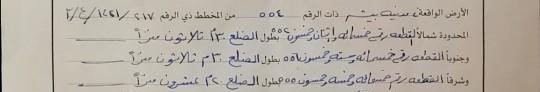 الأرض الواقعة مدينة بيشه ذات الرقم ٥٥٤ من المخطط ذي الرقم ٢١٧/١٤٢١/٤/٢
المحدودة شمالاً القطعه رقم خمسمائه واثنان وخمسون ٥٥٢ بطول الضلع ٣٠م ثلاثون متراً
وجنوباً القطعه رقم خمسمائه وسته وخمسون ٥٥٦ بطول الضلع ٣٠م ثلاثون متراً
وشرقاً القطعه رقم خمسمائه وخمسه وخمسون ٥٥٥ بطول الضلع ٢٠م عشرون متراً